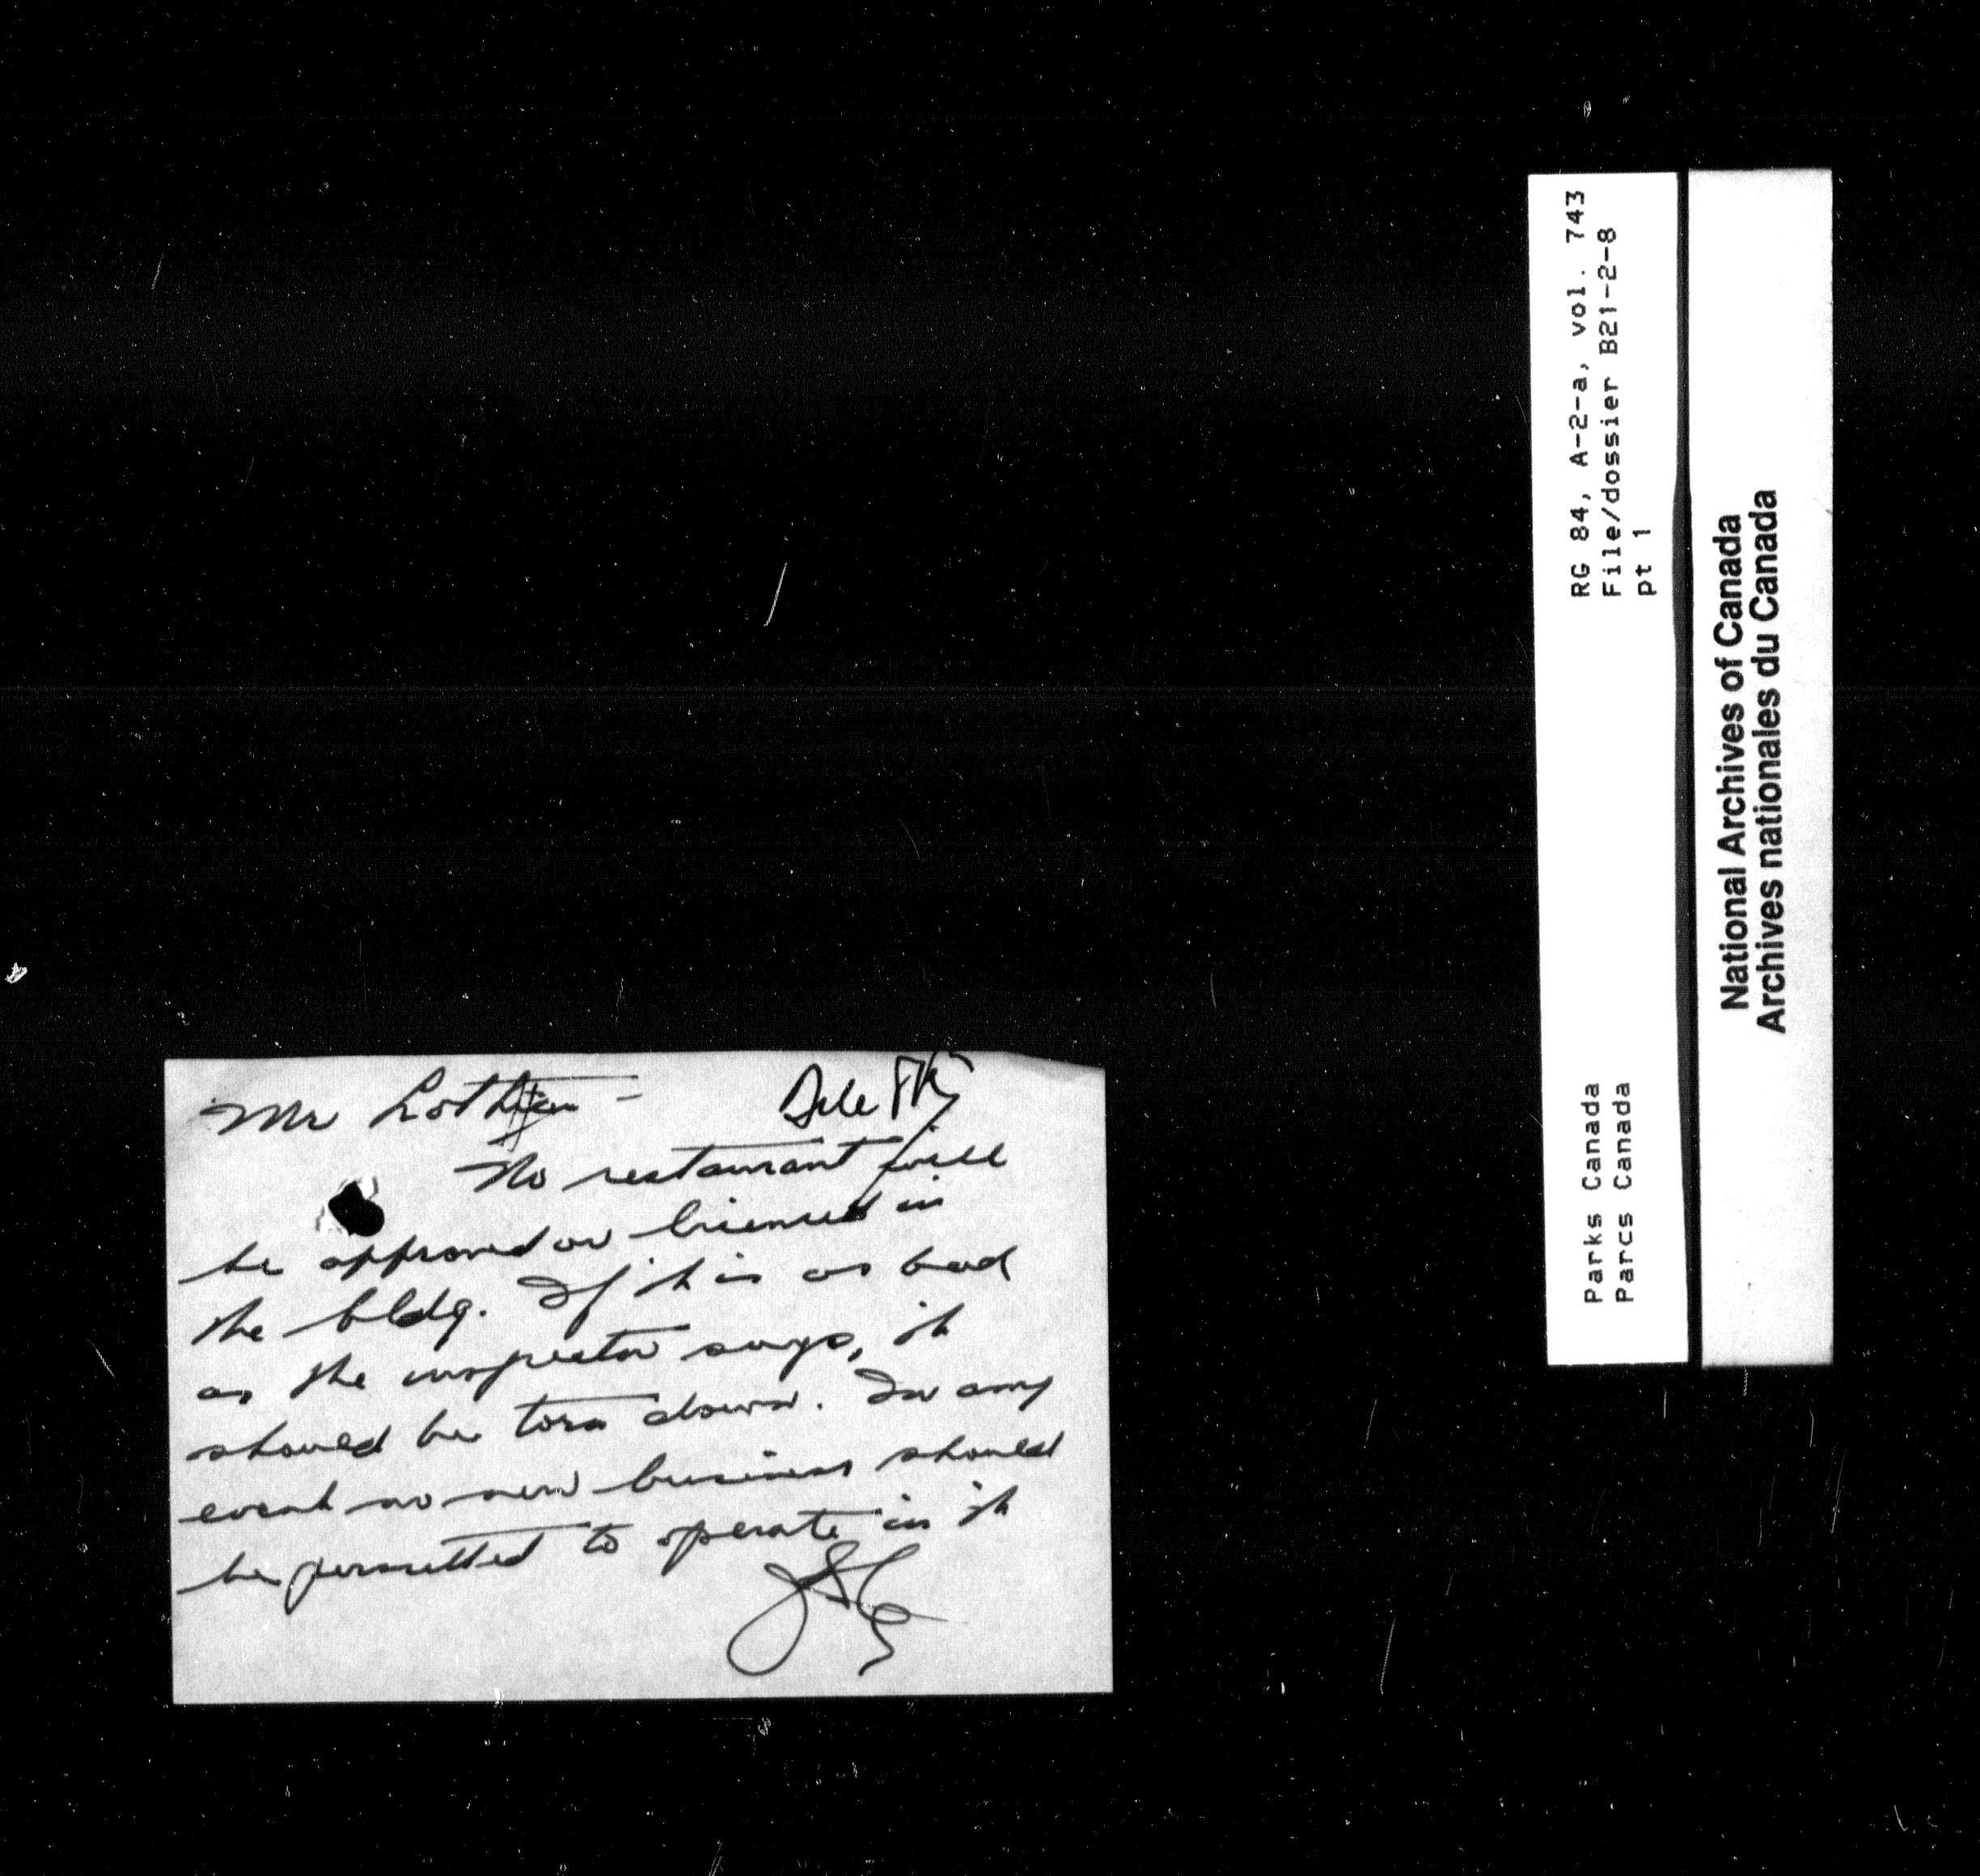 Mr Lothian -
No restaurant will
be approved or licensed in
the bldg. If it is as bad
as the inspector says, it
should be torn down. In any
event no new business should
be permitted to operate in it
RG 84, A-2-a, vol. 743
File/dossier B21-2-8
pt 1
Parks Canada
Parcs Canada
National Archives of Canada
Archives nationales du Canada